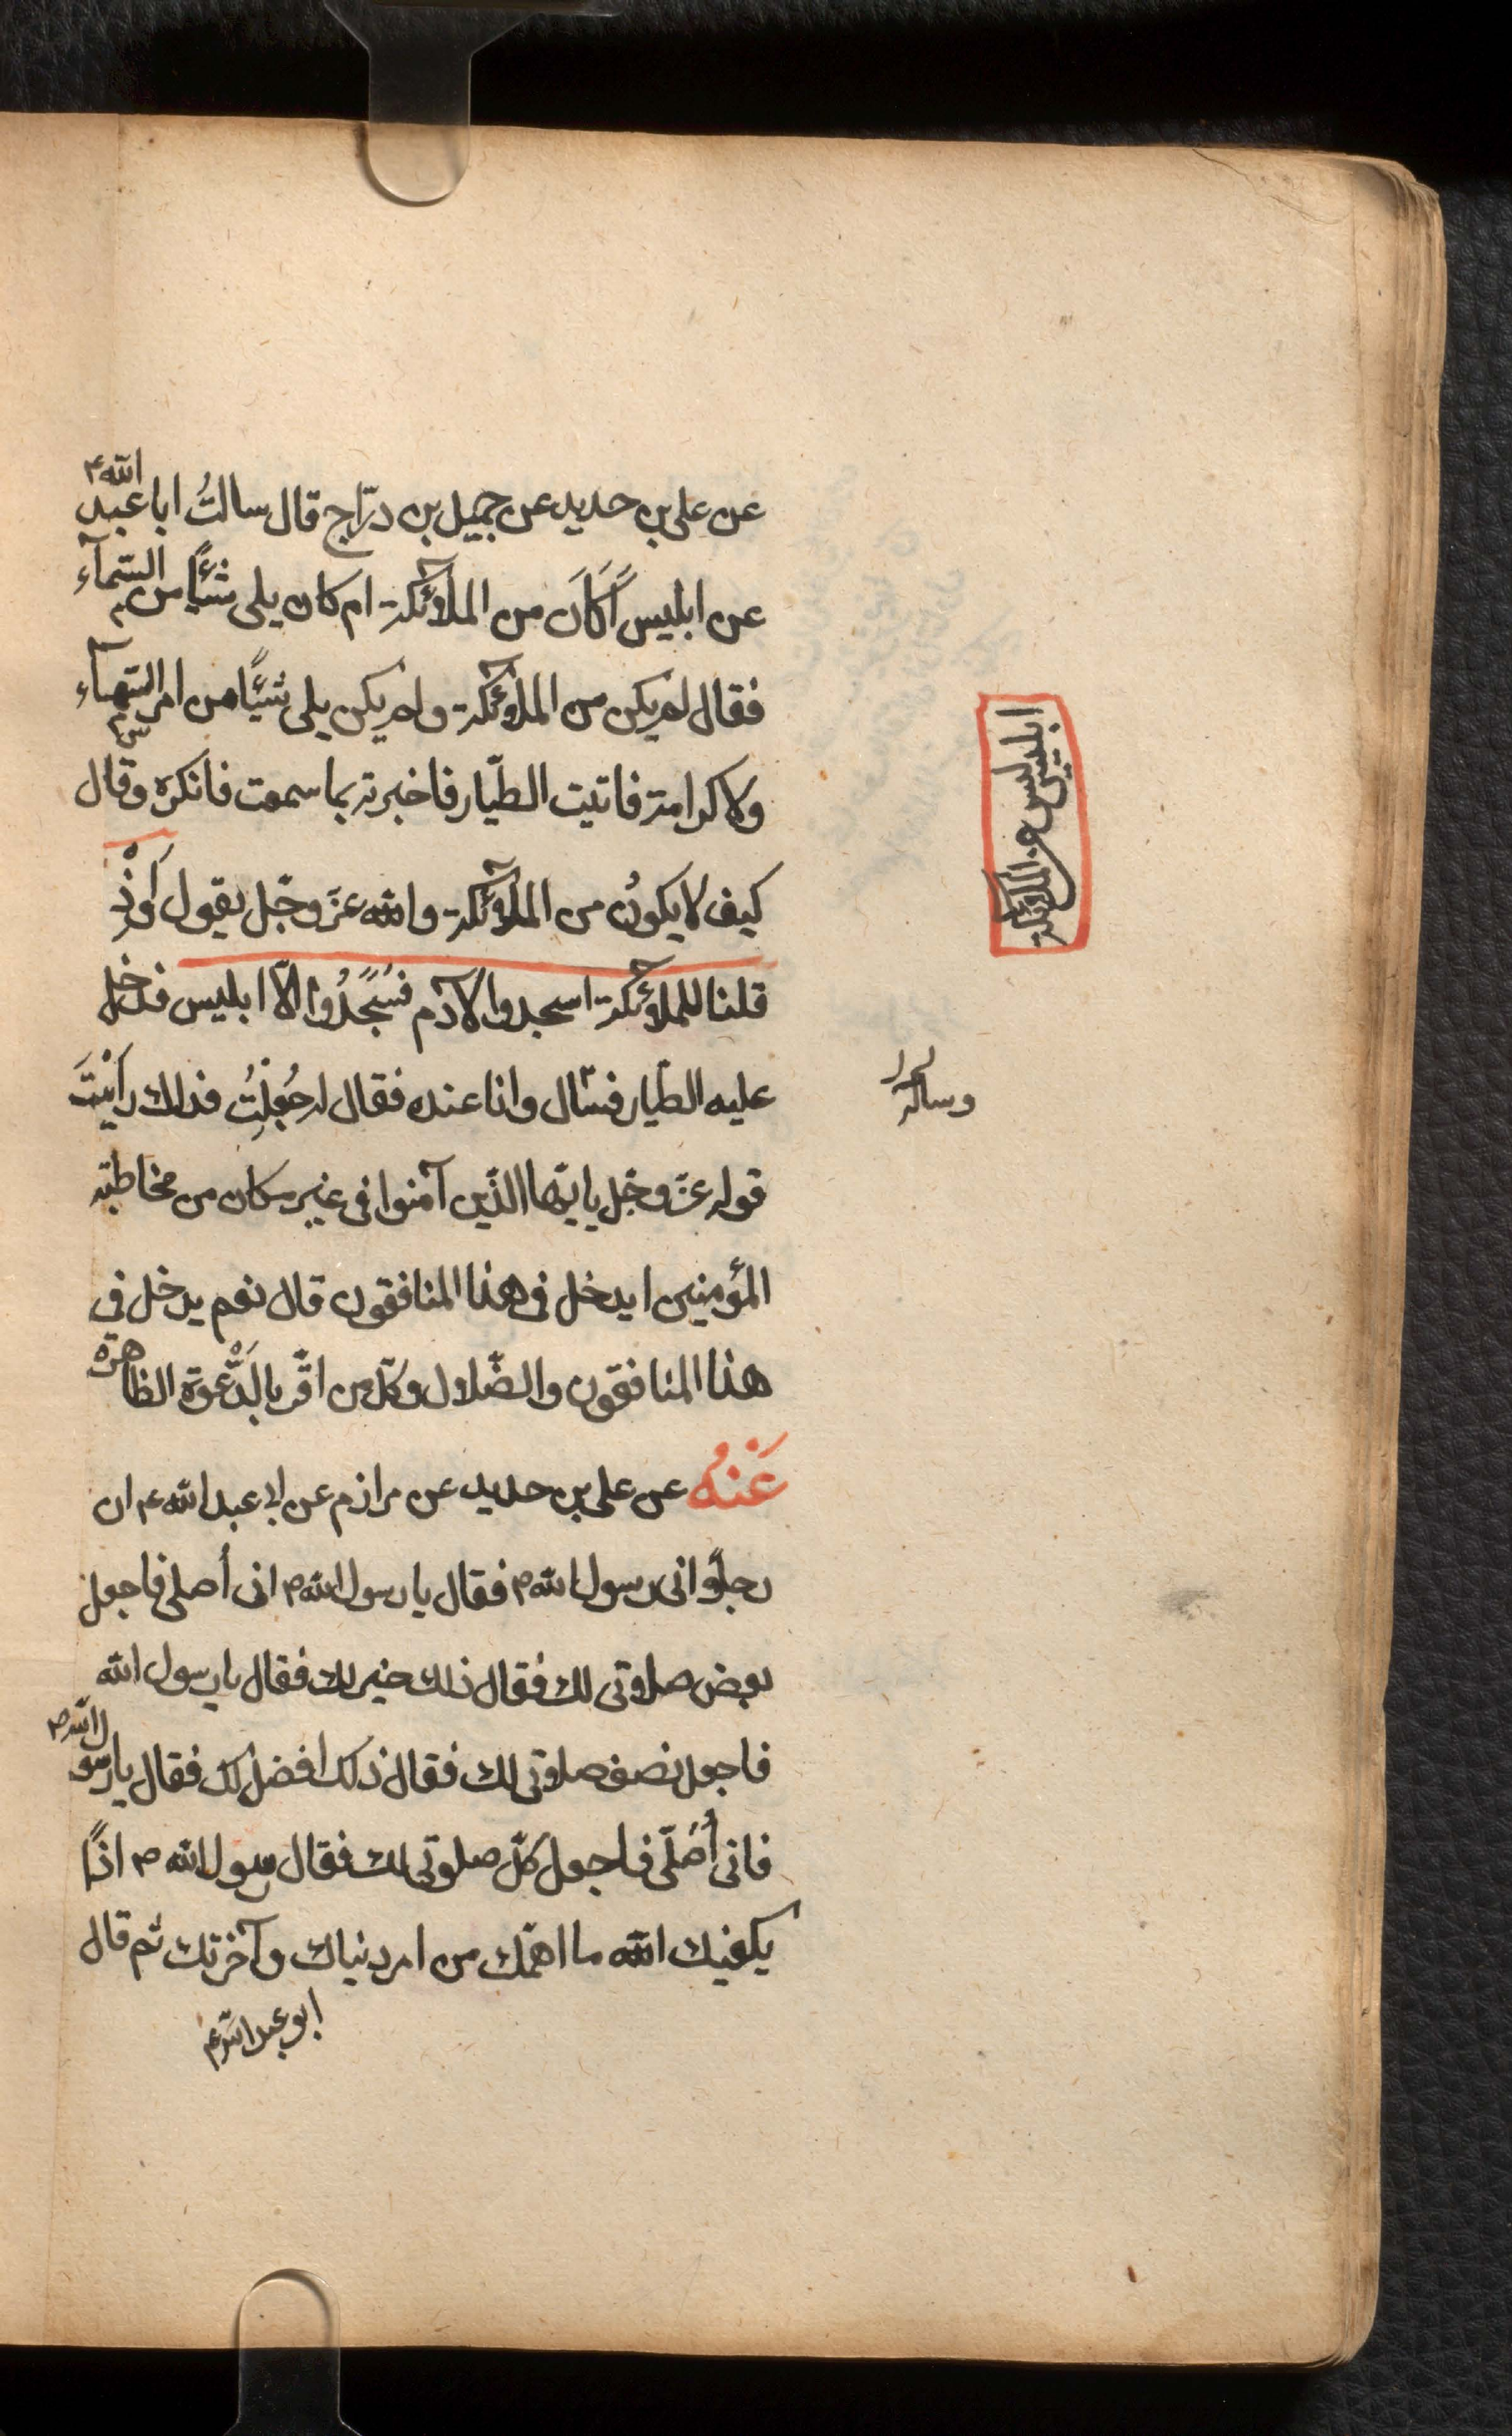 عن علی بن حدید عن جمیل بن درّاج قال سالتُ ابا عبد الله ع
عن ابلیس أَكَانَ من الملآئكة ام كان یلی شیئًا من السّمآء
فقال لم یكن من الملآئكة ولم یكن یلی شیئًا من امر السّمآء
ولا كرامة فاتیت الطیّار فاخبرته بما سمعت فانكره وقال
كیف لا یكونُ من الملآئكة والله عزّ وجّل یقول وَاِذْ
قلنا للملآئكة اسجدوا لآدم فَسَجَدُوا الّا ابلیس فدخل
علیه الطیّار فسَال وانا عنده فقال له جُعِلْتُ فداك رَاَیْتَ
قوله عزّ وجّل یا ایّها الذّین آمنوا فی غیر مكان من مخاطبة
المؤمنین ایدخل فی هذا المنافقون قال نعم یدخل فی
هذا المنافقون والضّلال وكلّ من اقّر بالدَّعْوة الظاهرة
عَنْهُ عن علی بن حدید عن مرازم عن ابی عبد الله ع ان
رجلًا اتی رسول الله ص فقال یا رسول الله ص انی أصلی فاجعل
بعض صلاوتی لك فقال ذلك خیر لك فقال یا رسول الله
فاجعل نصف صلاوتی لك فقال ذلك افضل لك فقال یا رسول الله ص
فانی اُصَلّی فاجعل كلّ صلوتی لك فقال رسول الله ص اذًا
یكفیك الله ما اهمّك من امر دنیاك وآخرتك ثم قال
ابو عبد الله ع
ابلیس لیس من الملآئكة
وساله